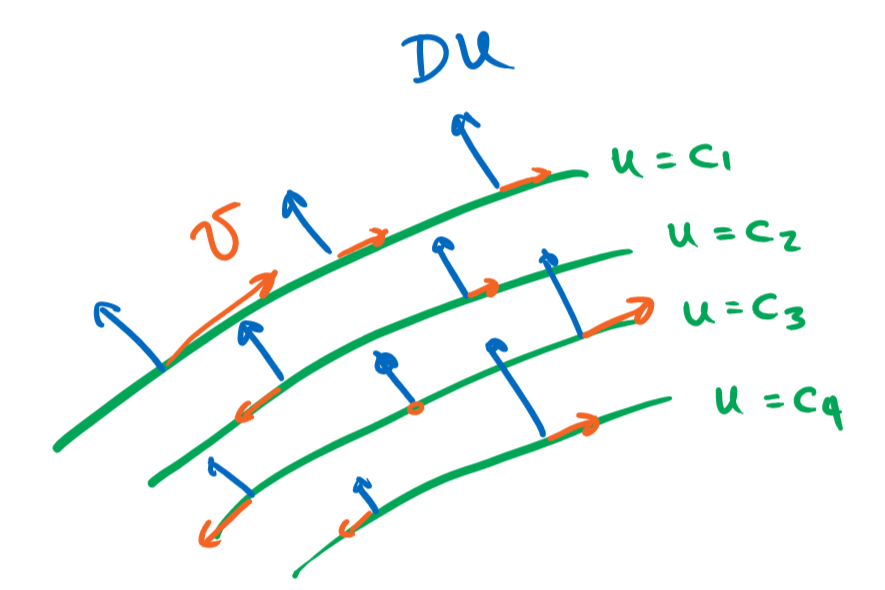 Du
u = c₁
v
u = c₂
u = c₃
u = c₄